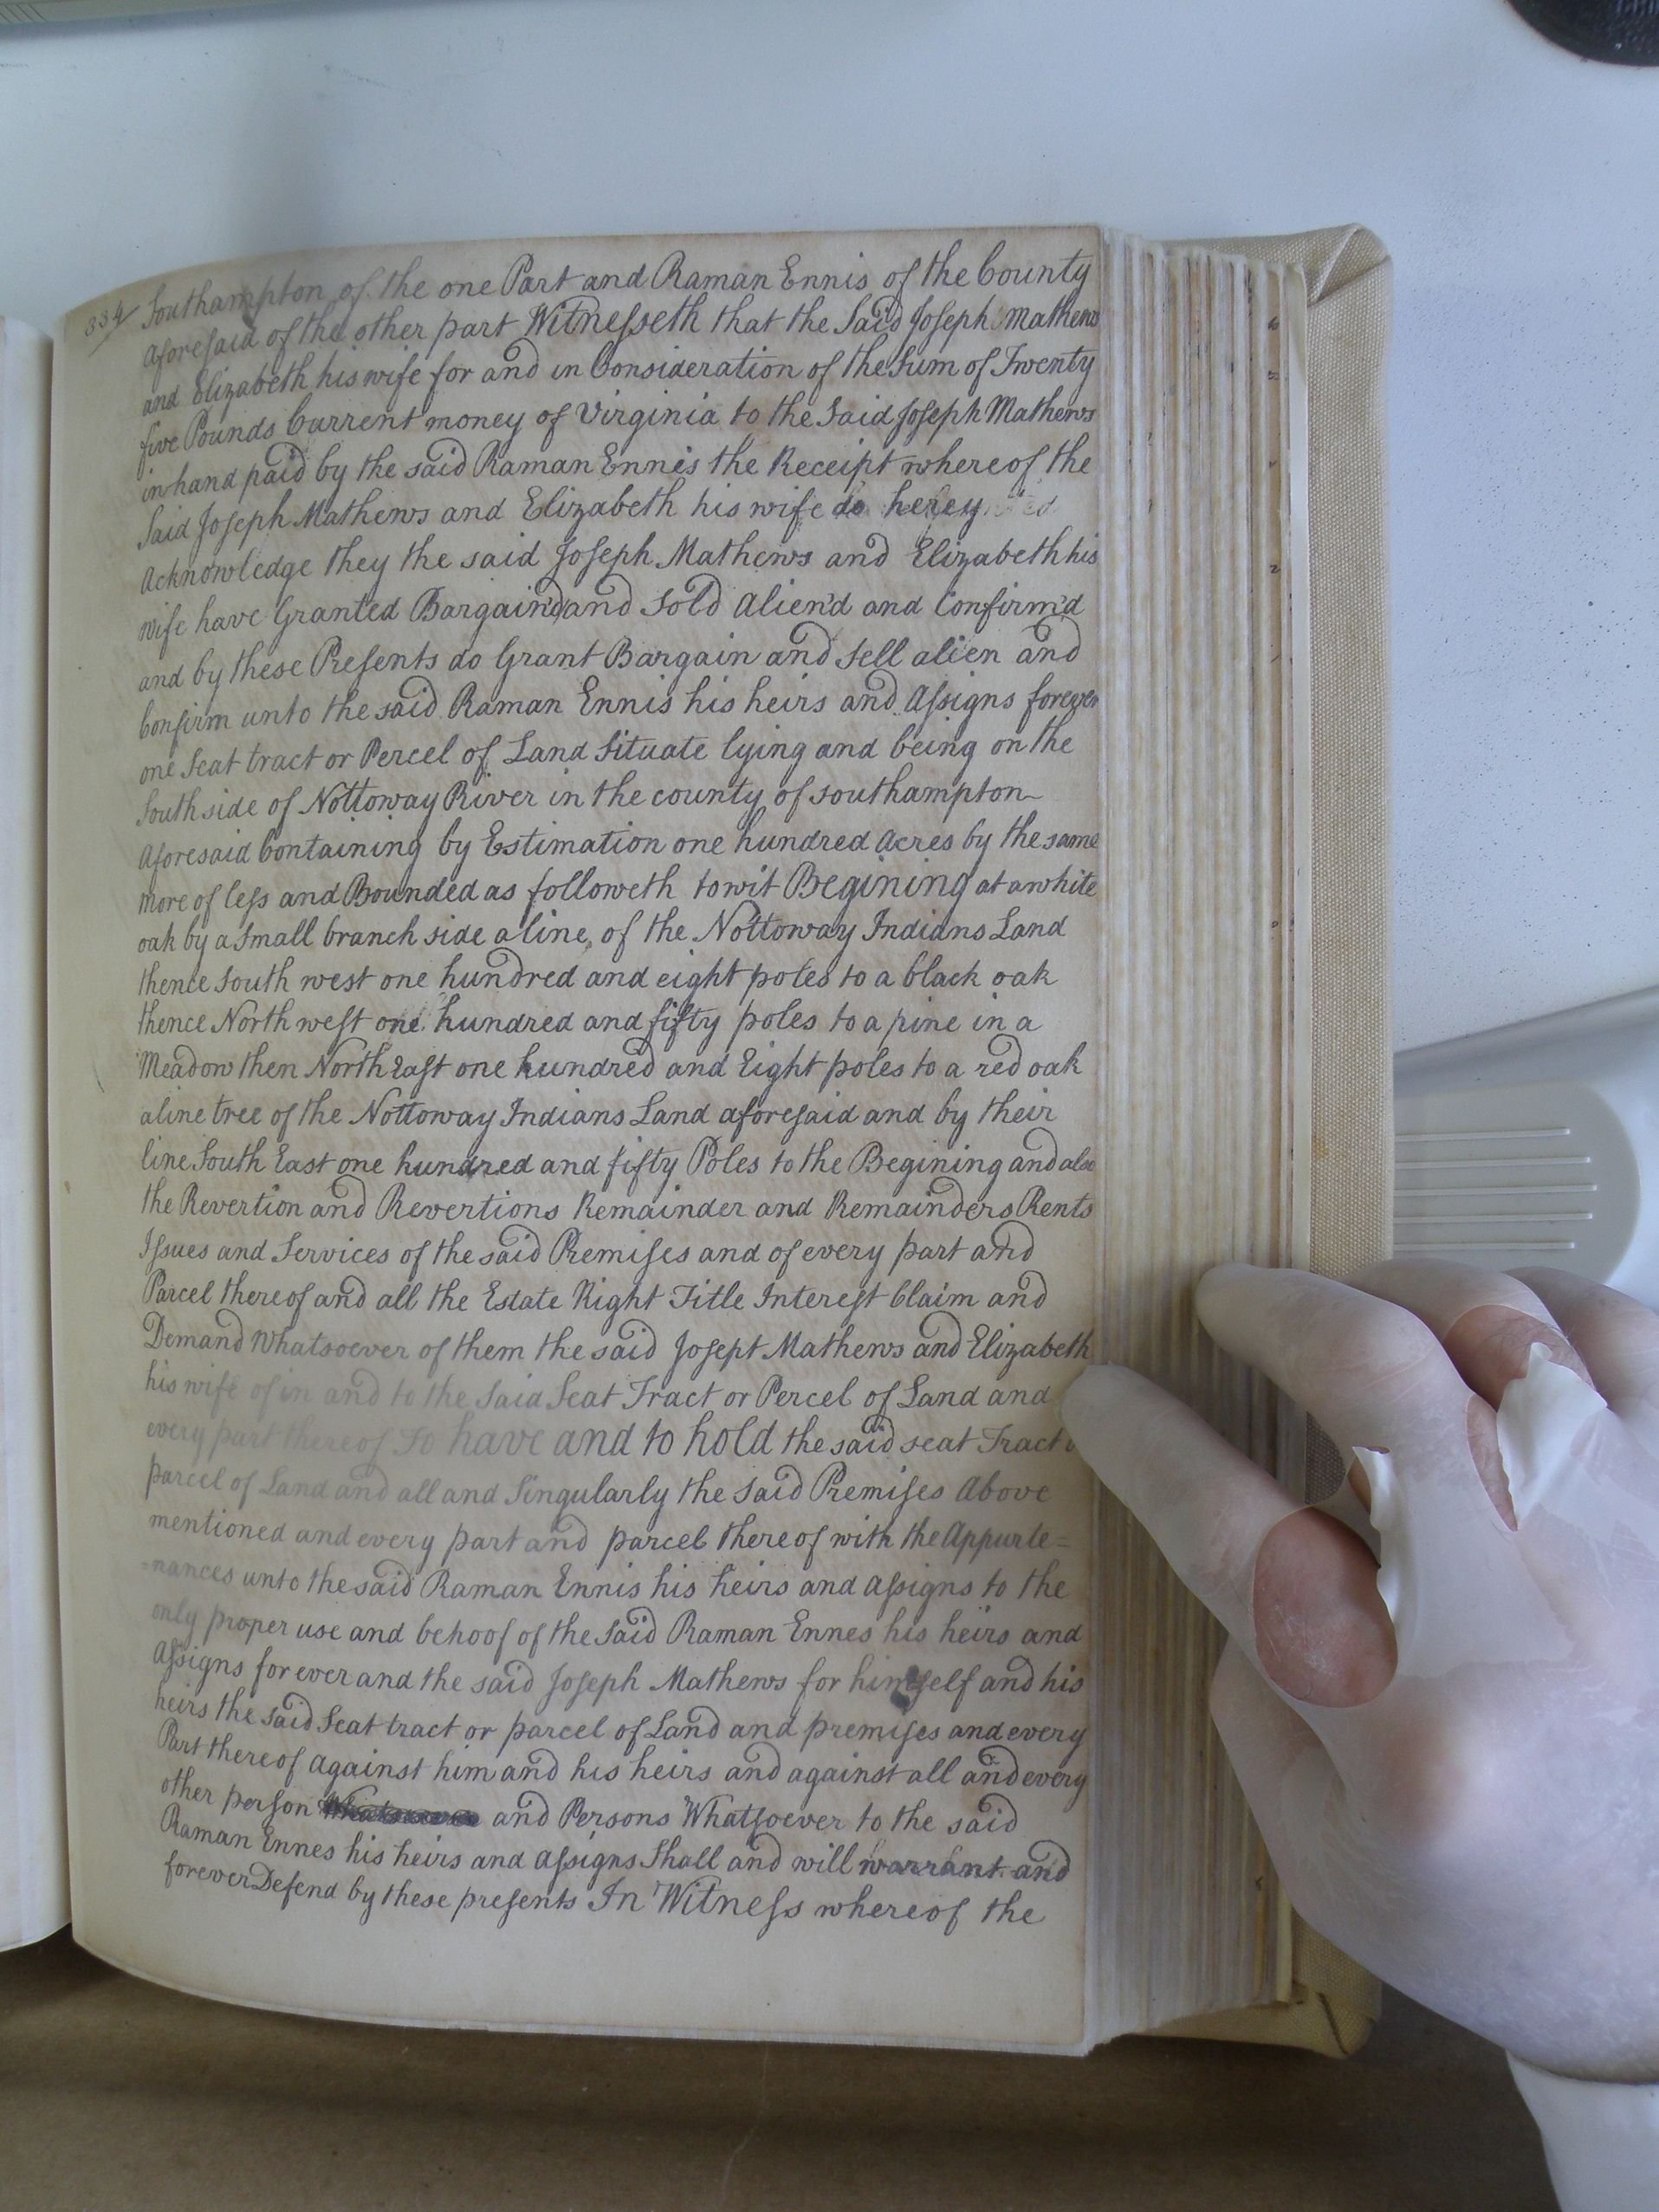 334
Southampton of the one Part and Raman Ennis of the County
aforesaid of the other part Witnesseth that the Said Joseph Mathews
and Elizabeth his wife for and in Consideration of the Sum of Twenty
five Pounds Current money of Virginia to the Said Joseph Mathews
in hand paid by the said Raman Ennis the Receipt whereof the
Said Joseph Mathews and Elizabeth his wife do herey
Acknowledge they the said Joseph Mathews and Elizabeth his
wife have Granted Bargain'd and Sold alien'd and Confirm'd
and by these Presents do Grant Bargain and Sell alien and
Confirm unto the said Raman Ennis his heirs and Assigns forever
one Seat tract or Percel of Land Situate lying and being on the
South side of Nottoway River in the county of southampton
Aforesaid Containing by Estimation one hundred acres by the same
more of less and Bounded as followeth towit Begining at a white
oak by a Small branch side a line, of the Nottoway Indians Land
thence South west one hundred and eight poles to a black oak
thence North west one hundred and fifty poles to a pine in a
Meadow then North East one hundred and Eight poles to a red oak
a line tree of the Nottoway Indians Land aforesaid and by their
line South East one hundred and fifty Poles to the Begining and also
the Revertion and Revertions Remainder and Remainders Rents
Issues and Services of the said Premises and of every part and
Parcel thereof and all the Estate Right Title Interest Claim and
Demand Whatsoever of them the said Josept Mathews and Elizabeth
his wife of in and to the Said Seat Tract or Percel of Land and
every part thereof To have and to hold the said seat Tract
parcel of Land and all and Singularly the Said Premises Above
mentioned and every part and parcel thereof with the Appurte=
=nances unto the said Raman Ennis his heirs and assigns to the
only proper use and behoof of the Said Raman Ennes his heirs and
Assigns for ever and the said Joseph Mathews for himself and his
heirs the said Seat tract or parcel of Land and premises and every
Part thereof against him and his heirs and against all and every
other person and Persons Whatsoever to the said
Raman Ennes his heirs and assigns Shall and will warrant and
forever Defend by these presents In Witness whereof the